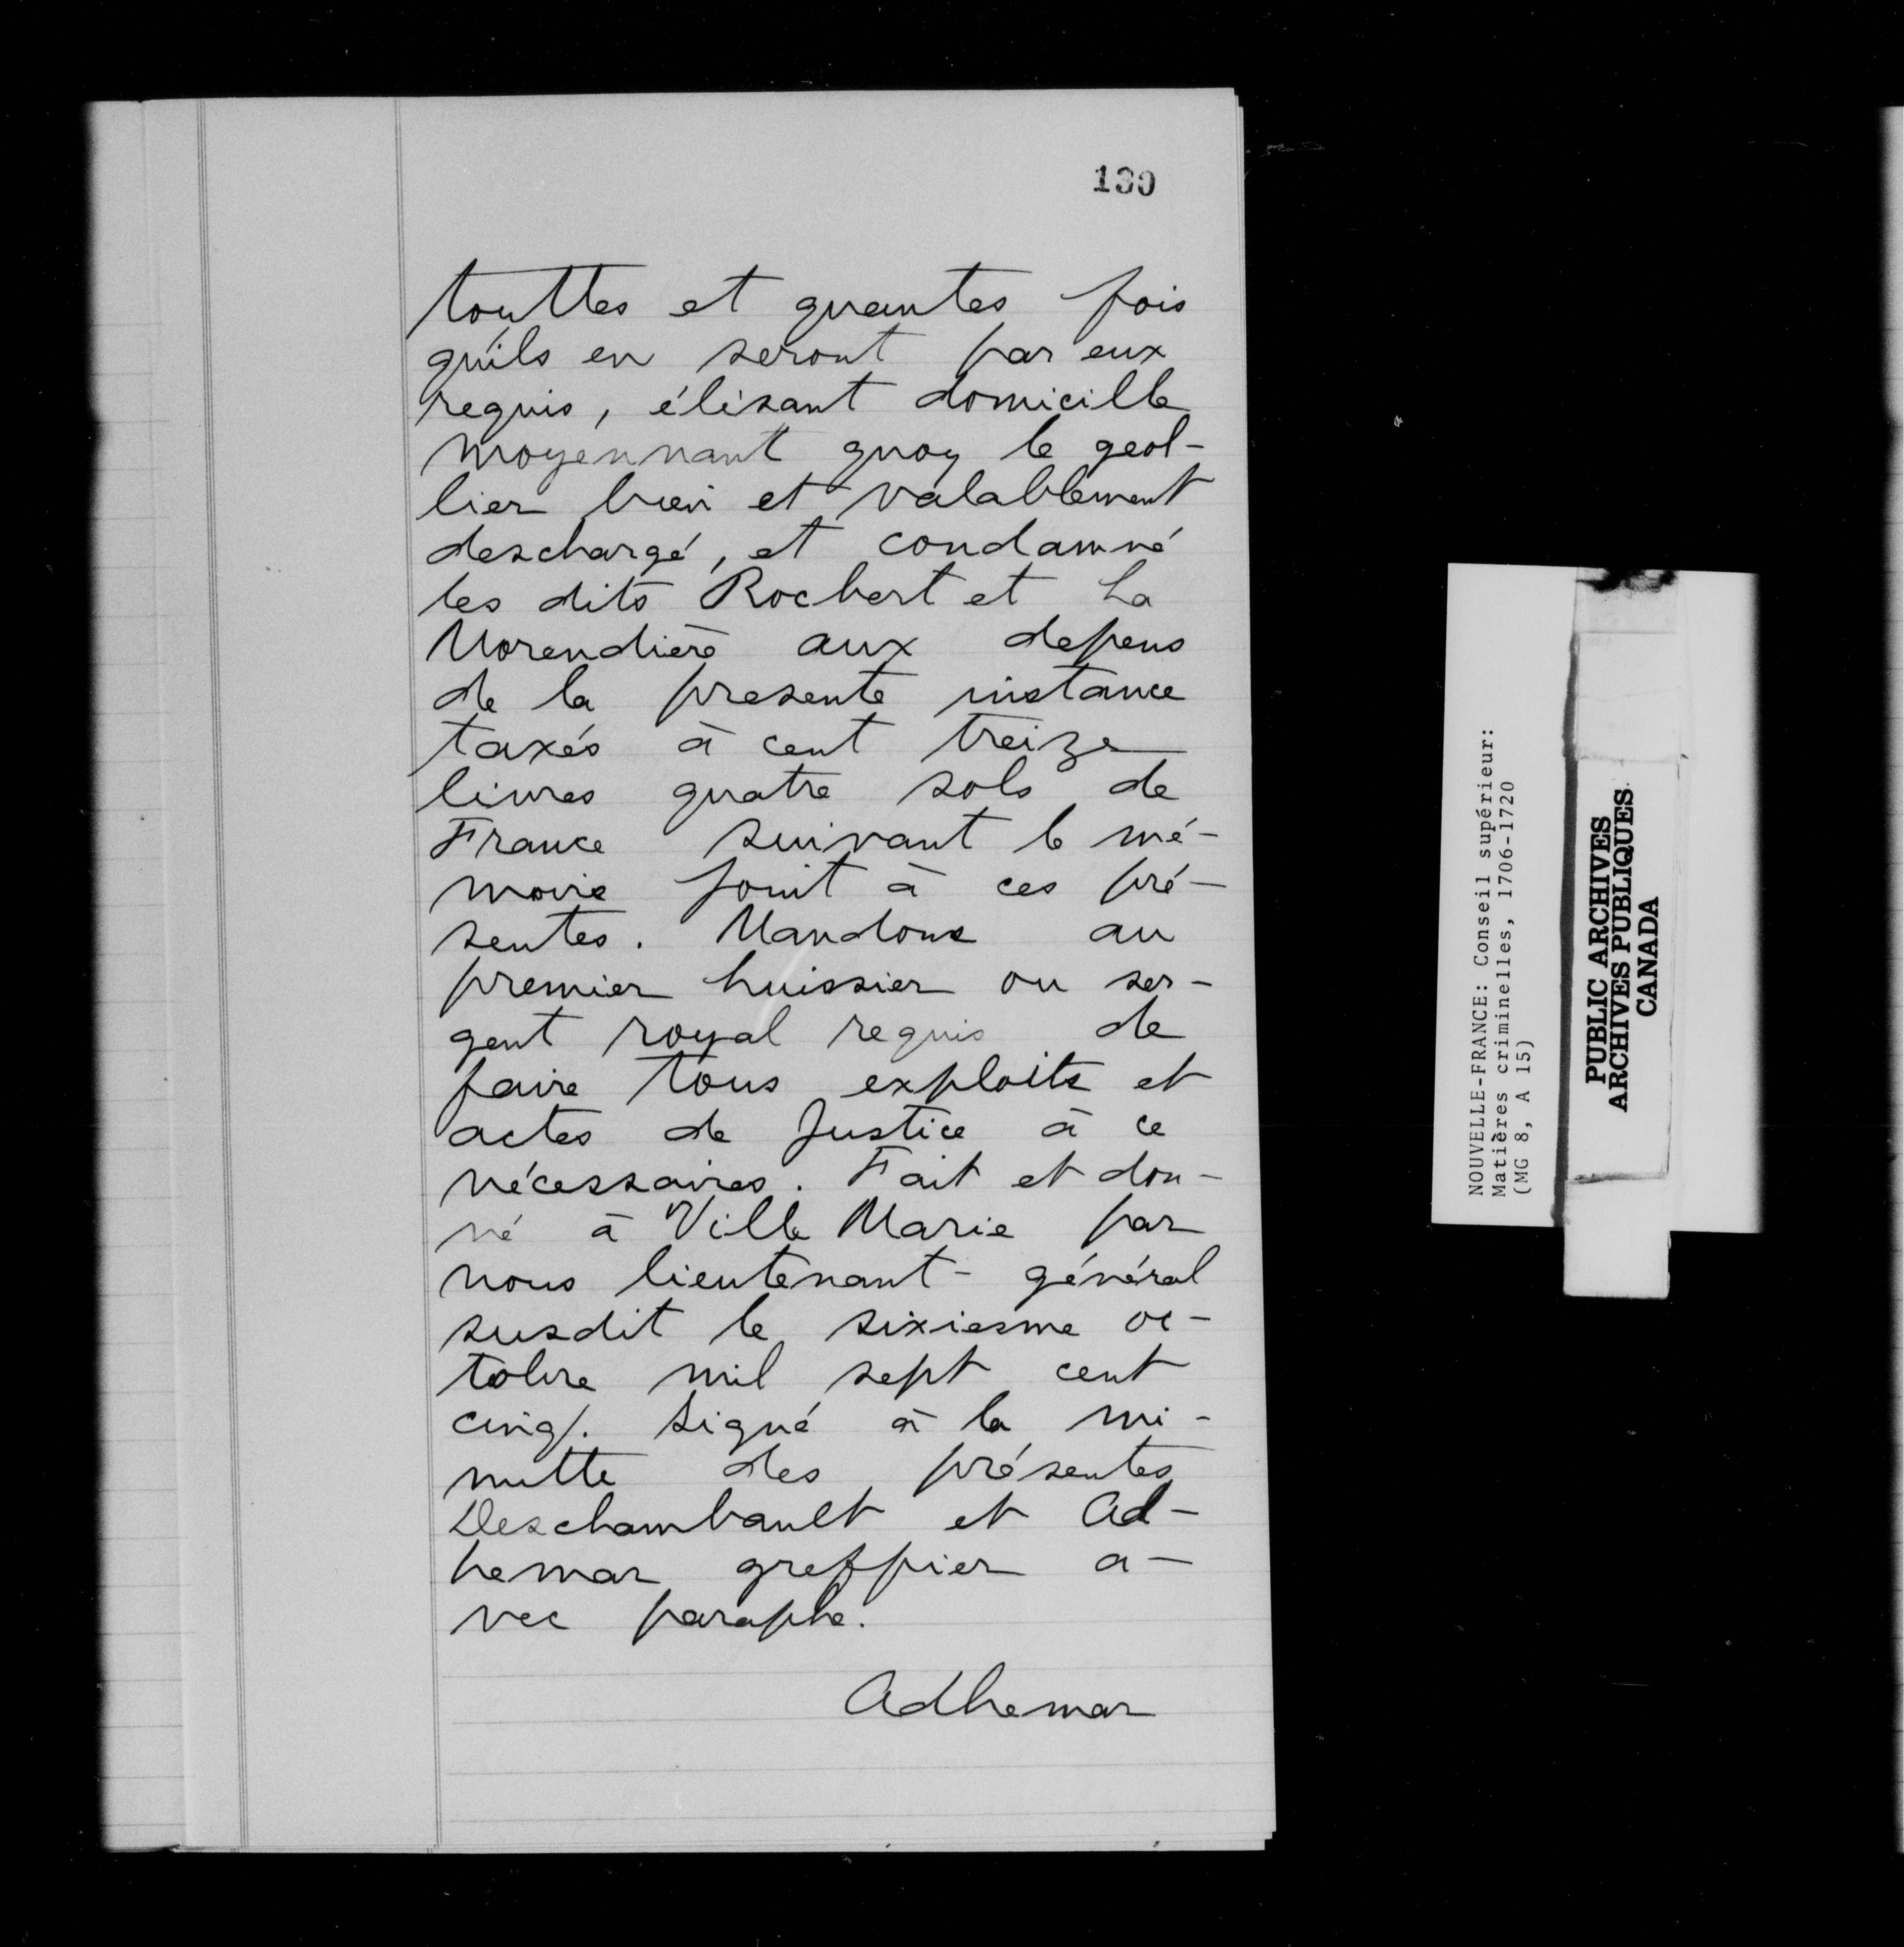 130
touttes et quantes fois
qu'ils en seront par eux
requis, élisant domicille
moyennant quoy le geol-
lier bien et valablement
deschargé, et condamné
les dits Rocbert et La
Morendière aux depens
de la presente instance
taxés à cent treize
livres quatre sols de
France suivant le mé-
moire joint à ces pré-
sentes. Mandons au
premier huissier ou ser-
gent royal requis de
faire tous exploits et
actes de Justice à ce
nécessaires. Fait et don-
né à Ville Marie par
nous lieutenant-général
susdit le sixiesme oc-
tobre mil sept cent
cinq/. Signé à la mi-
nutte des présentes
Deschambault et Ad-
hemar greffier a-
vec paraphe.
Adhemar
NOUVELLE-FRANCE: Conseil supérieur:
Matières criminelles, 1706-1720
(MG 8, A 15)
PUBLIC ARCHIVES
ARCHIVES PUBLIQUES
CANADA